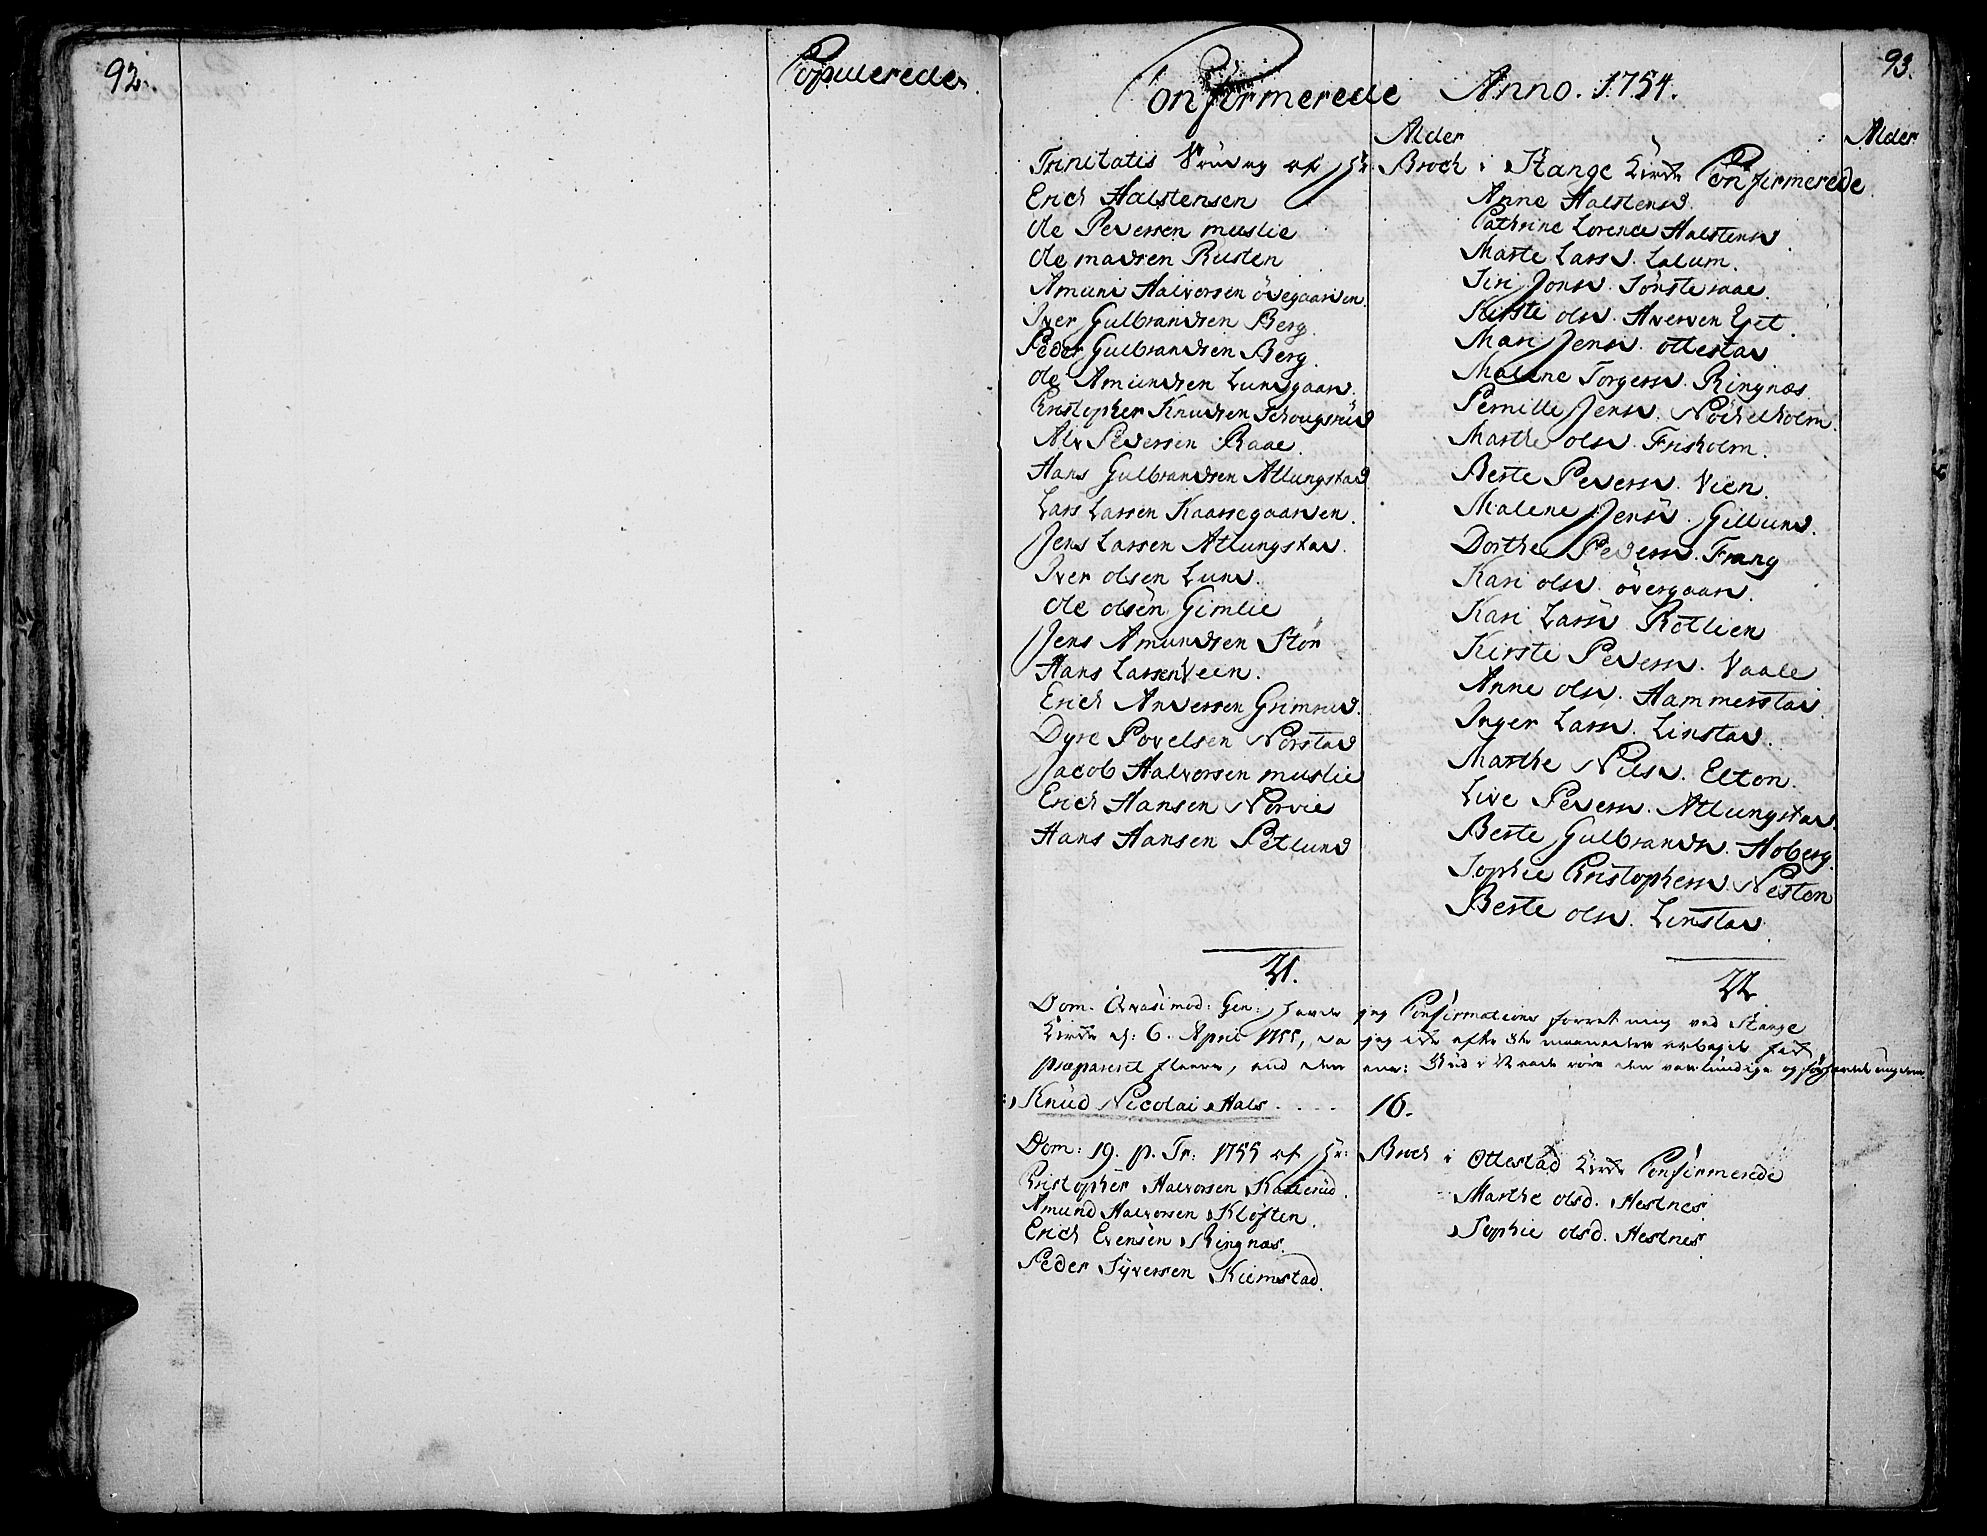 92.
Copulerede.
93.
Confirmerede Anno. 1754.
Alder
Alder
Trinitatis Søndag af Hr. Broch i Stange Kirke Confirmerede
Erich Halstensen
Ole Pedersen muslie
Ole madsen Rusten
Amund Halvorsen övegaarden.
Iver Gulbrandsen Berg.
Peder Gulbrandsen Berg.
Ole Amundsen Lundgaard.
Christopher Knudsen Schougsrud
Alv Pedersen Raae.
Hans Gulbrandsen Atlungstad
Lars Larsen Kaarsegaarden.
Jens Larsen Atlungstad.
Iver olsen Lund.
Ole olsen Gimlie
Jens Amundsen Stör
Hans Larsen Veen.
Erich Andersen Grimrud.
Dyre Povelsen Norstad
Jacob Halvorsen muslie
Erich Hansen Norvie
Hans Hansen Petlund
21.
Anne Halstensd.
Cathrine Lorence Halstensd.
Marte Larsd. Lalum.
Siri Jonsd. Sönsteraae.
Kirste olsd. Anderen Eget.
Mari Jensd. ottestad
Malene Torgersd. Ringnæs.
Pernille Jensd. Nöchelholm.
Marthe olsd. Frisholm.
Berte Pedersd. Vien.
Malene Jensd. Gillund.
Dorthe Pedersd. Frang
Kari olsd. övergaard.
Kari Larsd. Rotlien
Kirste Pedersd. Vaale
Anne olsd. Hammerstad.
Inger Larsd. Linstad.
Marthe Nilsd. Elton.
Live Pedersd. Atlungstad.
Berte Gulbrandsd. Hoberg.
Sophie Christophersd. Nesten
Berte olsd. Linstad.
22.
Dom. Qvasimod: Gen: havde jeg Confirmations forretning ved Stange
Kirke d: 6. April 1755, da jeg
præpareret
Knud Nicolai Hals . . . . 16.
Dom: 19. p. Tr: 1755 af Hr: Broch i Ottestad Kirke Confirmerede
Christopher Halvorsen Kallerud.
Amund Halvorsen Kloften.
Erich Evensen Ringnæs.
Peder Syversen Kiemstad.
Marthe olsd. Hestnes
Sophie olsd. Hestnes.